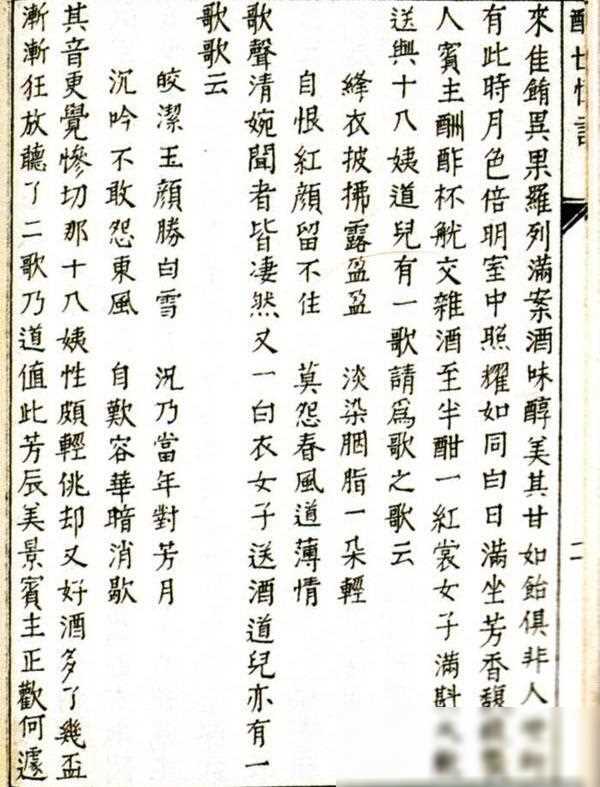 二
來佳餚異果羅列滿案酒味醇美其甘如飴俱非人
有此時月色倍明室中照耀如同白日滿坐芳香馥
人賓主酬酢杯觥交雜酒至半酣一紅裳女子滿斟
送與十八姨道兒有一歌請爲歌之歌云
絳衣披拂露盈盈　淡染胭脂一朵輕
自恨紅顏留不住　莫怨春風道薄情
歌聲清婉聞者皆凄然又一白衣女子送酒道兒亦有一
歌歌云
皎潔玉顏勝白雪　況乃當年對芳月
沉吟不敢怨東風　自歎容華暗消歇
其音更覺慘切那十八姨性頗輕佻却又好酒多了幾盃
漸漸狂放聽了二歌乃道值此芳辰美景賓主正歡何遽